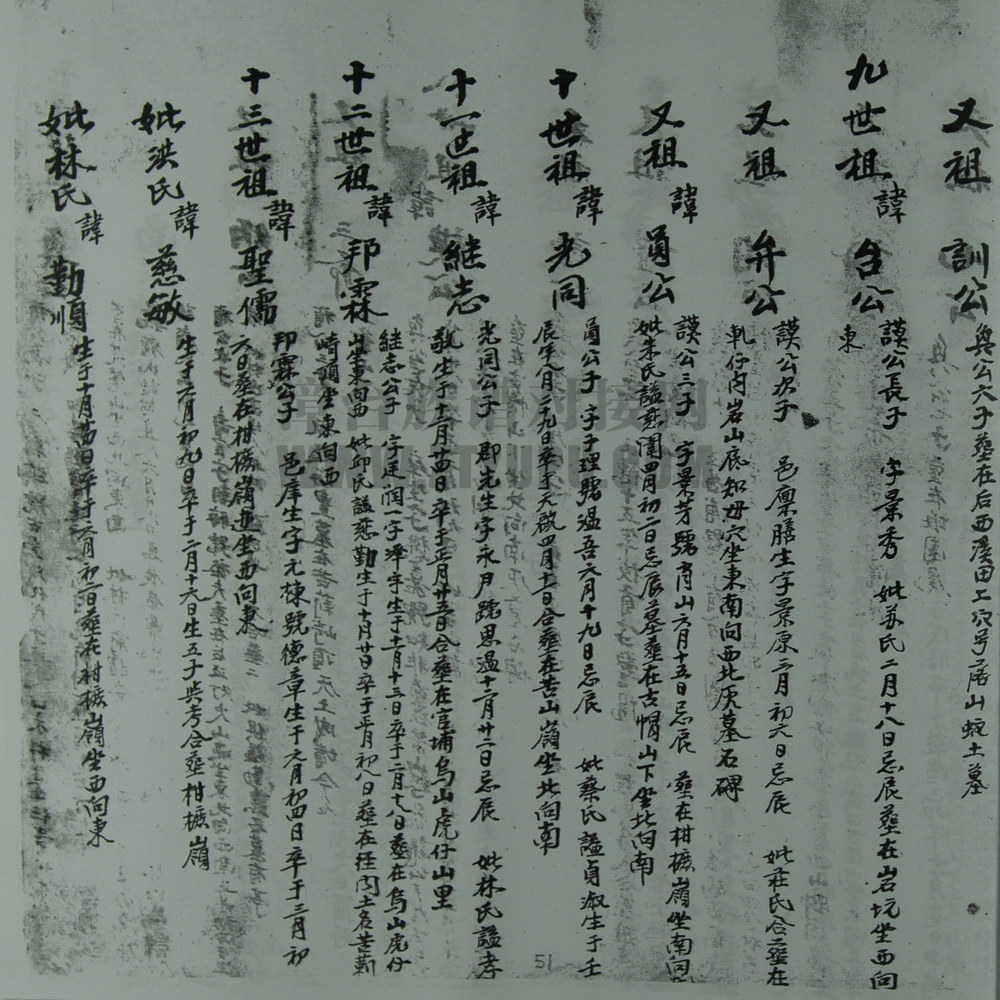 又祖 訓公 與公六子葬在后西 田工 号 山 土墓
九世祖諱 台公 謨公長子 字景秀 妣苏氏二月十八日忌辰葬在岩坑坐西向
東
又祖 弁公 謨公次子 邑廪膳生字景原二月初六日忌辰 妣莊氏合葬在
軋仔内岩山底知母穴坐東南向西北庚墓石碑
又祖諱 員公 謨公三子 字景芳號肖山六月十五日忌辰 葬在柑檨嶺坐南向
妣朱氏諡慈 四月初二日忌辰墓葬在古帽山下坐北向南
十世祖諱 光同 員公子 字子理號温吾六月十九日忌辰 妣蔡氏諡貞淑生于壬
辰年八月二九日卒于天啟四月十一日合葬在苦山嶺坐北向南
十一世祖諱 継志 光同公子 郡先生字永尹號思温十二月廿二日忌辰 妣林氏諡孝
敬生于十一月 日卒于正月廿五日合葬在官埔烏山虎仔山里
十二世祖諱 邦霖 継志公子 字廷润一字澤宇生于十一月十三日卒于二月十八日葬在烏山虎仔
山坐東向西 妣邱氏諡慈勤生于十月廿日卒于正月初八日葬在径内土名苦莿
崎頭坐東向西
十三世祖諱 聖儒 邦霖公子 邑庠生字元棟號德章生于元月初四日卒于三月初
六日葬在柑檨嶺 坐西向東
妣洪氏諱 慈敏 生于六月初九日卒于二月十六日生五子共考合葬柑檨嶺
妣林氏諱 勤順 生于十月 日卒于六月初 日葬在柑檨嶺坐西向東
51
章合族谱对接网